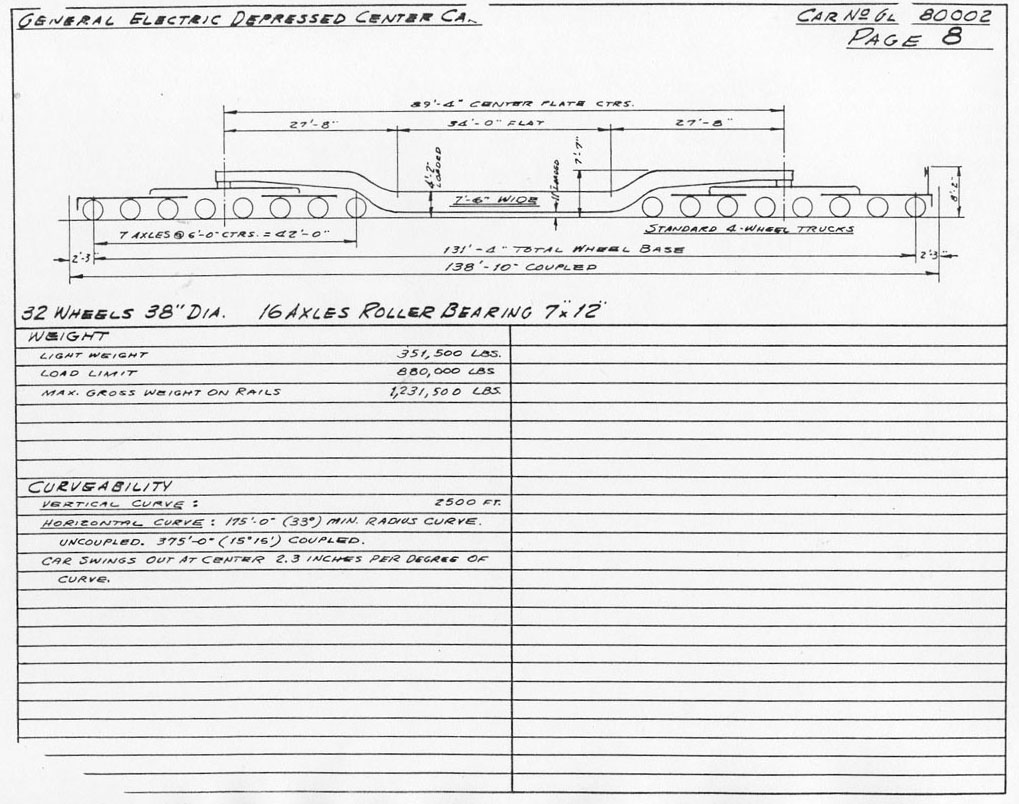 GENERAL ELECTRIC DEPRESSED CENTER CA.
CAR Nº GL 80002
PAGE 8
89'-4" CENTER PLATE CTRS.
27'-8" 34'-0" FLAT 27'-8"
4'-2" LOADED
11" LOADED
7'-7"
8'-2"
7'-6" WIDE
7 AXLES @ 6'-0" CTRS. = 42'-0"
STANDARD 4-WHEEL TRUCKS
2'-3" 131'-4" TOTAL WHEEL BASE 2'-3"
138'-10" COUPLED
32 WHEELS 38" DIA. 16 AXLES ROLLER BEARING 7"x 12"
WEIGHT
LIGHT WEIGHT 351,500 LBS.
LOAD LIMIT 880,000 LBS
MAX. GROSS WEIGHT ON RAILS 1,231,500 LBS.
CURVEABILITY
VERTICAL CURVE : 2500 FT.
HORIZONTAL CURVE : 175'-0" (33°) MIN. RADIUS CURVE.
UNCOUPLED. 375'-0" (15°16') COUPLED.
CAR SWINGS OUT AT CENTER 2.3 INCHES PER DEGREE OF
CURVE.